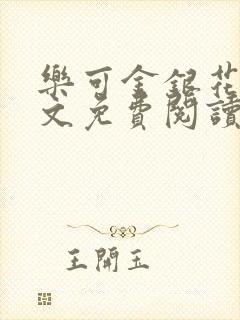 樂可金銀花
文免費閱讀
王開玉